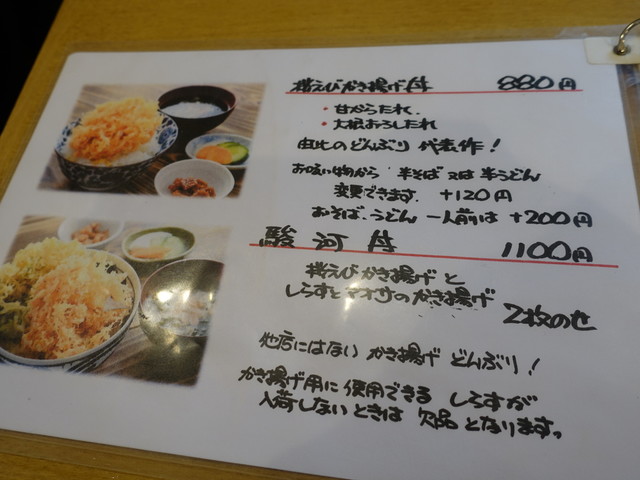 桜えびかき揚げ丼 880円
・甘からたれ.
・大根おろしたれ
由比のどんぶり 代表作!
お吸い物から 半そば 又は 半うどん
変更できます. +120円
おそば、うどん 一人前は +200円
駿河丼 1100円
桜えびかき揚げと
しらすとアオサのかき揚げ
2枚のせ
他店にはない かき揚げ どんぶり!
かき揚げ用に使用できる しらすが
入荷しないときは 欠品となります。